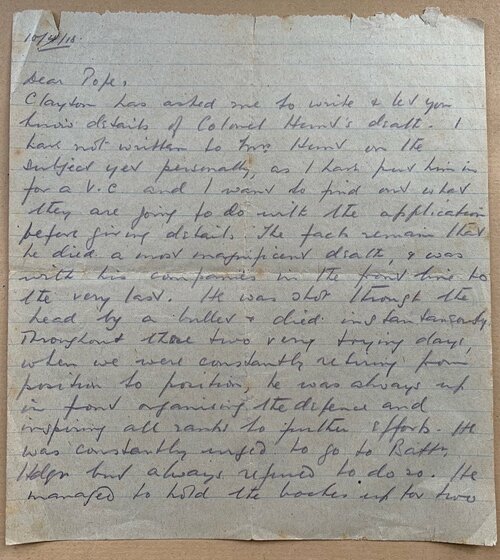 10/4/18.
Dear Pope,
Clayton has asked me to write & let you
know details of Colonel Hunt's death. I
have not written to Mrs Hunt on the
subject yet personally, as I have put him in
for a V.C. and I want to find out what
they are going to do with the application
before giving details. The facts remain that
he died a most magnificent death, & was
with his companies in the front line to
the very last. He was shot through the
head by a bullet & died instantaneously.
Throughout these two very trying days,
when we were constantly retiring from
position to position, he was always up
in front organising the defence and
inspiring all ranks to further efforts. He
was constantly urged to go to Battn
Hdqrs but always refused to do so. He
managed to hold the boches up for two